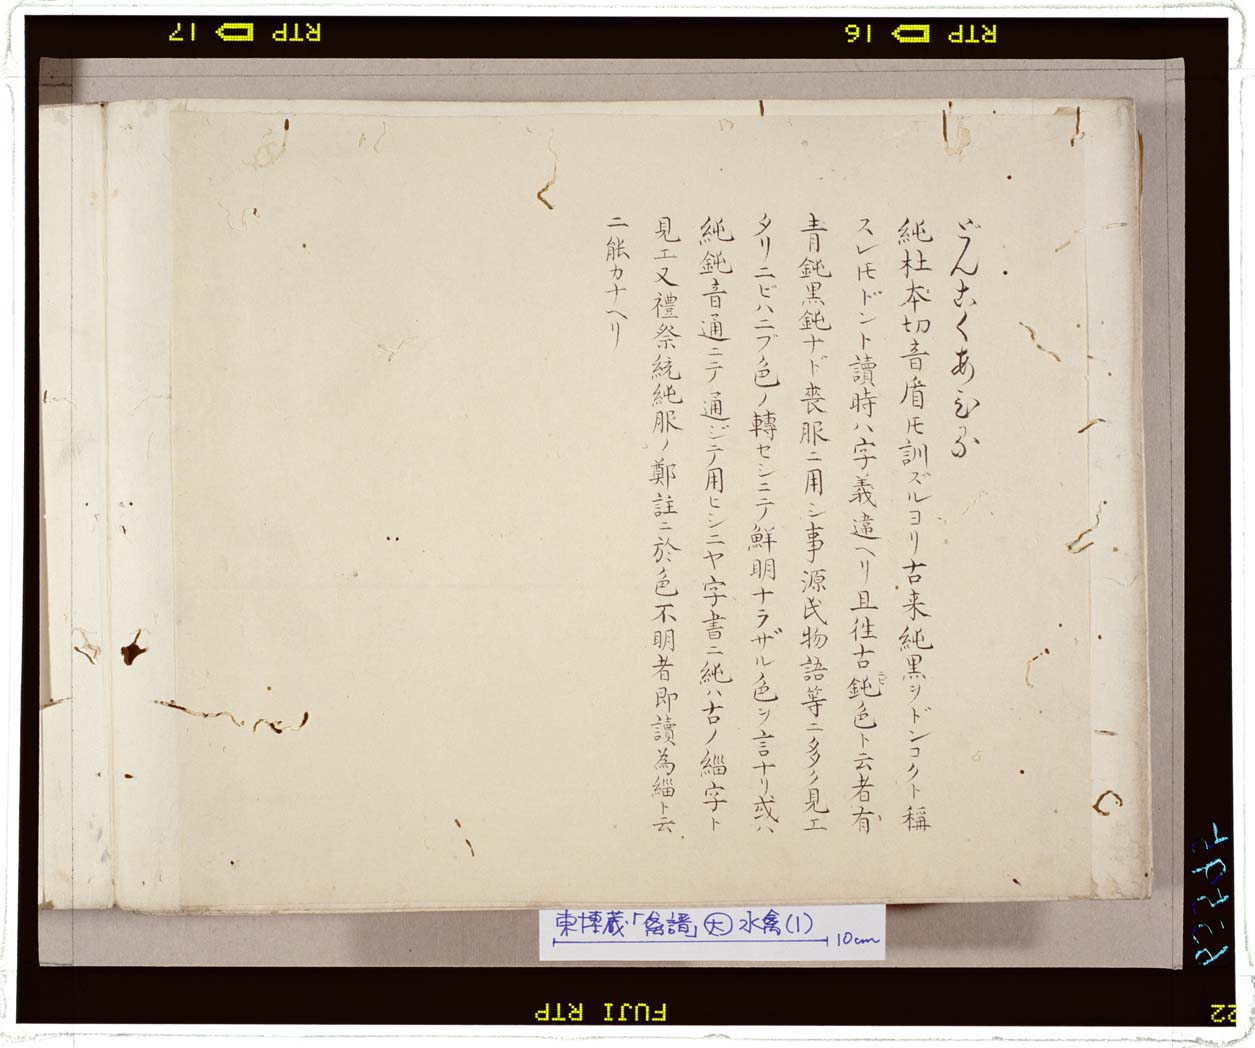 どんこくあひる
純杜本切音盾圧訓ズルヨリ古来純黒ヲドンコクト稱
スレ圧ドント讀時ハ字義違ヘリ且徃古鈍色ト云者有
青鈍黒鈍ナド喪服ニ用シ事源氏物語等ニ多ク見エ
タリニビハニブ色ノ轉セシニテ鮮明ナラザル色ヲ言ナリ或ハ
純鈍音通ニテ通ジテ用ヒシニヤ字書ニ純ハ古ノ緇字ト
見エ又禮祭統純服ノ鄭註ニ於色不明者即讀為緇ト云
ニ能カナヘリ
東博蔵「禽譜」大 水禽(1)
10cm
RTP 17
RTP 16
FUJI RTP
22